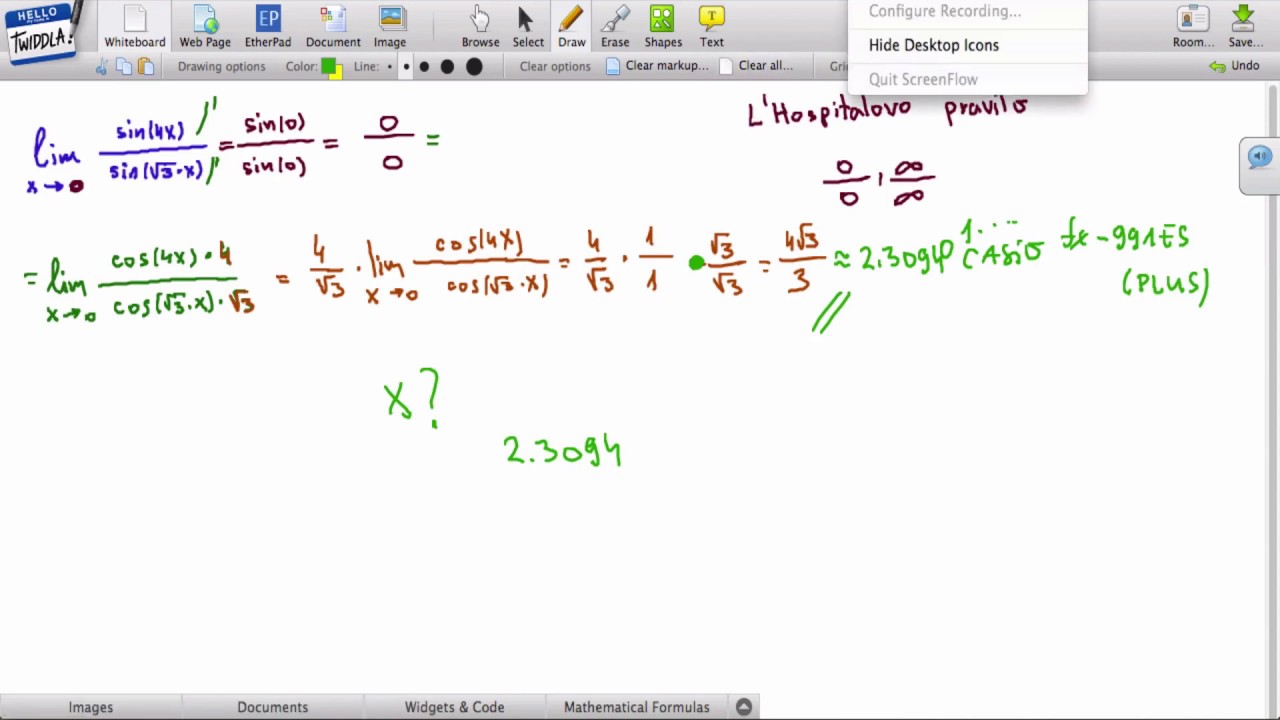 HELLO
my name is
TWIDDLA!
Whiteboard Web Page EtherPad Document Image Browse Select Draw Erase Shapes Text Room... Save...
EP T
Configure Recording...
Hide Desktop Icons
Quit ScreenFlow
Drawing options Color: Line: Clear options Clear markup... Clear all... Gri Undo
L'Hospitalovo pravilo
lim x→0 sin(4x)′ / sin(√3·x)′ = sin(0) / sin(0) = 0/0 =
0/0 , ∞/∞
= lim x→0 cos(4x)·4 / cos(√3·x)·√3 = 4/√3 · lim x→0 cos(4x) / cos(√3·x) = 4/√3 · 1/1 · √3/√3 = 4√3/3 ≈ 2.3094 CASIO fx-991ES
(PLUS)
x?
2.3094
Images Documents Widgets & Code Mathematical Formulas